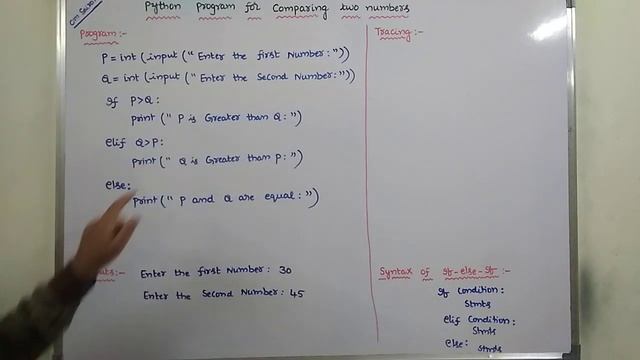 Python Program for Comparing two numbers
Program:-
P = int (input (" Enter the first Number:"))
Q = int (input (" Enter the Second Number:"))
If P>Q:
Print (" P is Greater than Q:")
elif Q>P:
Print (" Q is Greater than P:")
else:
Print (" P and Q are equal:")
Enter the first Number: 30
Enter the Second Number: 45
Tracing:-
Syntax of If-else-If:-
If Condition:
Stmts
elif Condition:
Stmts
else:
Stmts